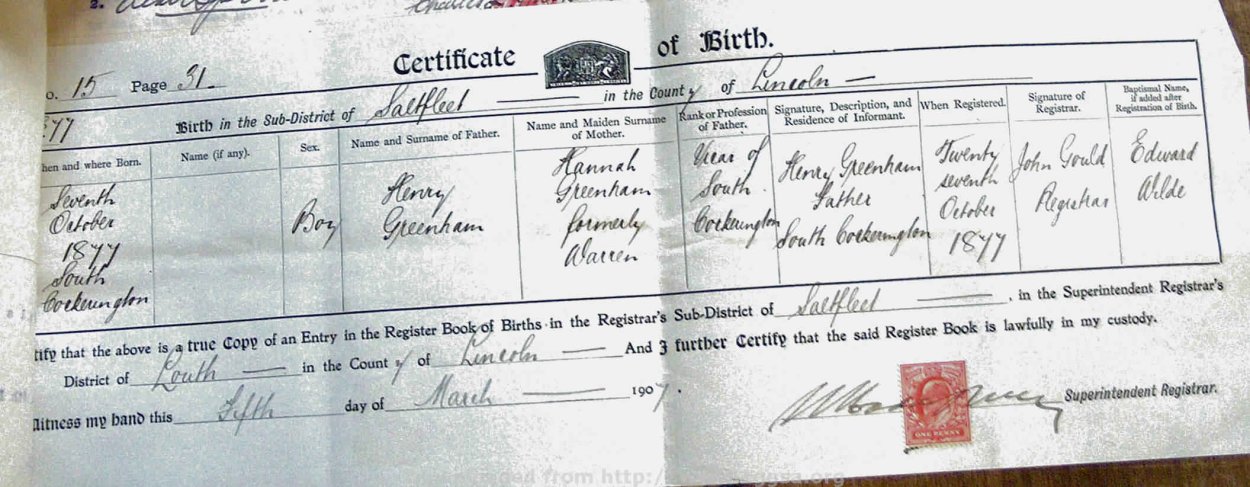 2.
Certificate of Birth.
o. 15 Page 31.
77 Birth in the Sub-District of Saltfleet in the County of Lincoln
hen and where Born. Name (if any). Sex. Name and Surname of Father. Name and Maiden Surname of Mother. Rank or Profession of Father. Signature, Description, and Residence of Informant. When Registered. Signature of Registrar. Baptismal Name, if added after Registration of Birth.
Seventh
October
1877
South
Cockerington
Boy
Henry
Greenham
Hannah
Greenham
formerly
Warren
Vicar of
South
Cockerington
Henry Greenham
Father
South Cockerington
Twenty
seventh
October
1877
John Gould
Registrar
Edward
Wilde
tify that the above is a true Copy of an Entry in the Register Book of Births in the Registrar's Sub-District of Saltfleet, in the Superintendent Registrar's
District of Louth in the County of Lincoln And I further Certify that the said Register Book is lawfully in my custody.
Witness my hand this Fifth day of March 1907.
Superintendent Registrar.
ONE PENNY
ged from http:/
gsa.org